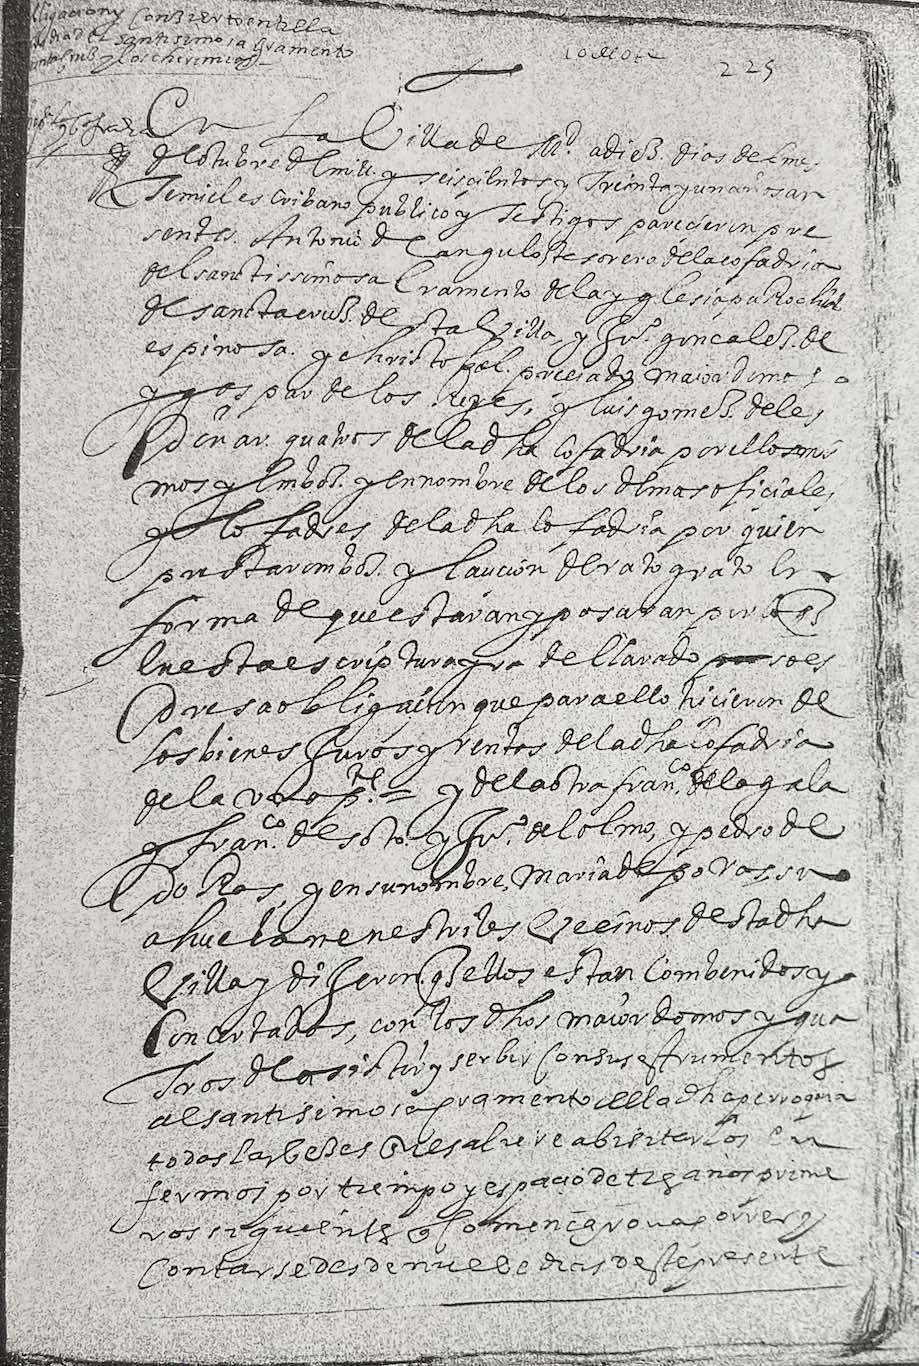 lligacion y Conzierto entre lla
santisimo sagramento
y los cherimias
225
En La Villa de Md. a diez dias de el mes
de otubre de mill y seiscientos y Treinta y un años an
te mi el escribano publico y testigos parecieron pre
sentes Antonio de angulo tesorero de la cofadria
del santissimo sacramento de la yglesia parrochial
de santa cruz de esta Villa, y Juº gonçalez de
espinosa y christobal preciado maiordomos
y gaspar de los Reyes, y luis gomez de le
quatros de la dha cofadria por ellos mis
mos y en nombre de los demas oficiales
y cofadres de la dha cofadria por quien
prestaron boz y caucion de rato grato en
forma de que estaran y pasaran por lo
en esta escriptura y ra declarado so es
presa obligacion que para ello hicieron de
los bienes Juros y rentas de la dha cofadria
de la una pte = y de la otra franco de la gala
y franco de soto y Juº del olmo, y pedro de
porras, y en su nombre, Maria de porras su
ahuela menestriles Vecinos de esta dha
Villa y dijeron q ellos estan Combenidos y
Concertados, con los dhos maiordomos y qua
tros de asistir y serbir con sus estrumentos
al santisimo sagramento de la dha perroquia
todas las beces que saliere a bisitar los en
fermos por tiempo y espacio de tres años prime
ros siguientes q Començaron a correr y
Contarse desde nuebe dias deste presente